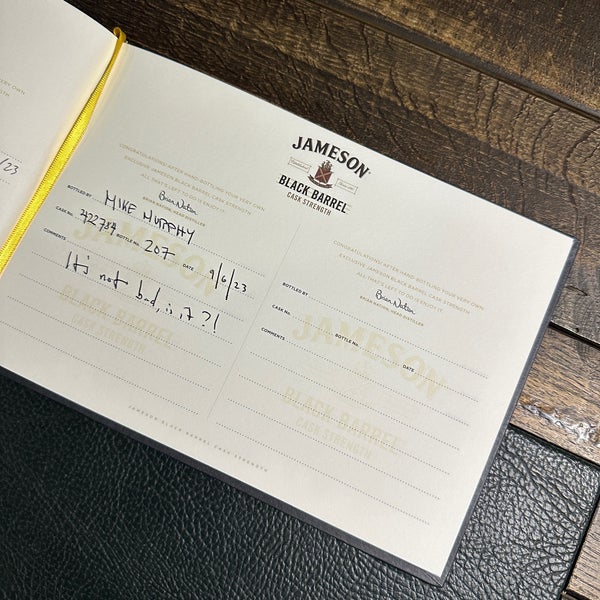 /23
JAMESON
BLACK BARREL
CASK STRENGTH
CONGRATULATIONS! AFTER HAND-BOTTLING YOUR VERY OWN
EXCLUSIVE JAMESON BLACK BARREL CASK STRENGTH
ALL THAT'S LEFT TO DO IS ENJOY IT.
Brian Nation
BRIAN NATION, HEAD DISTILLER
BOTTLED BY MIKE MURPHY
CASK NO. 422784 BOTTLE NO. 207 DATE 9/6/23
COMMENTS
It's not bad, is it?!
JAMESON
BLACK BARREL
CASK STRENGTH
CONGRATULATIONS! AFTER HAND-BOTTLING YOUR VERY OWN
EXCLUSIVE JAMESON BLACK BARREL CASK STRENGTH
ALL THAT'S LEFT TO DO IS ENJOY IT.
Brian Nation
BRIAN NATION, HEAD DISTILLER
BOTTLED BY
CASK NO. BOTTLE NO. DATE
COMMENTS
JAMESON
BLACK BARREL
CASK STRENGTH
JAMESON BLACK BARREL CASK STRENGTH